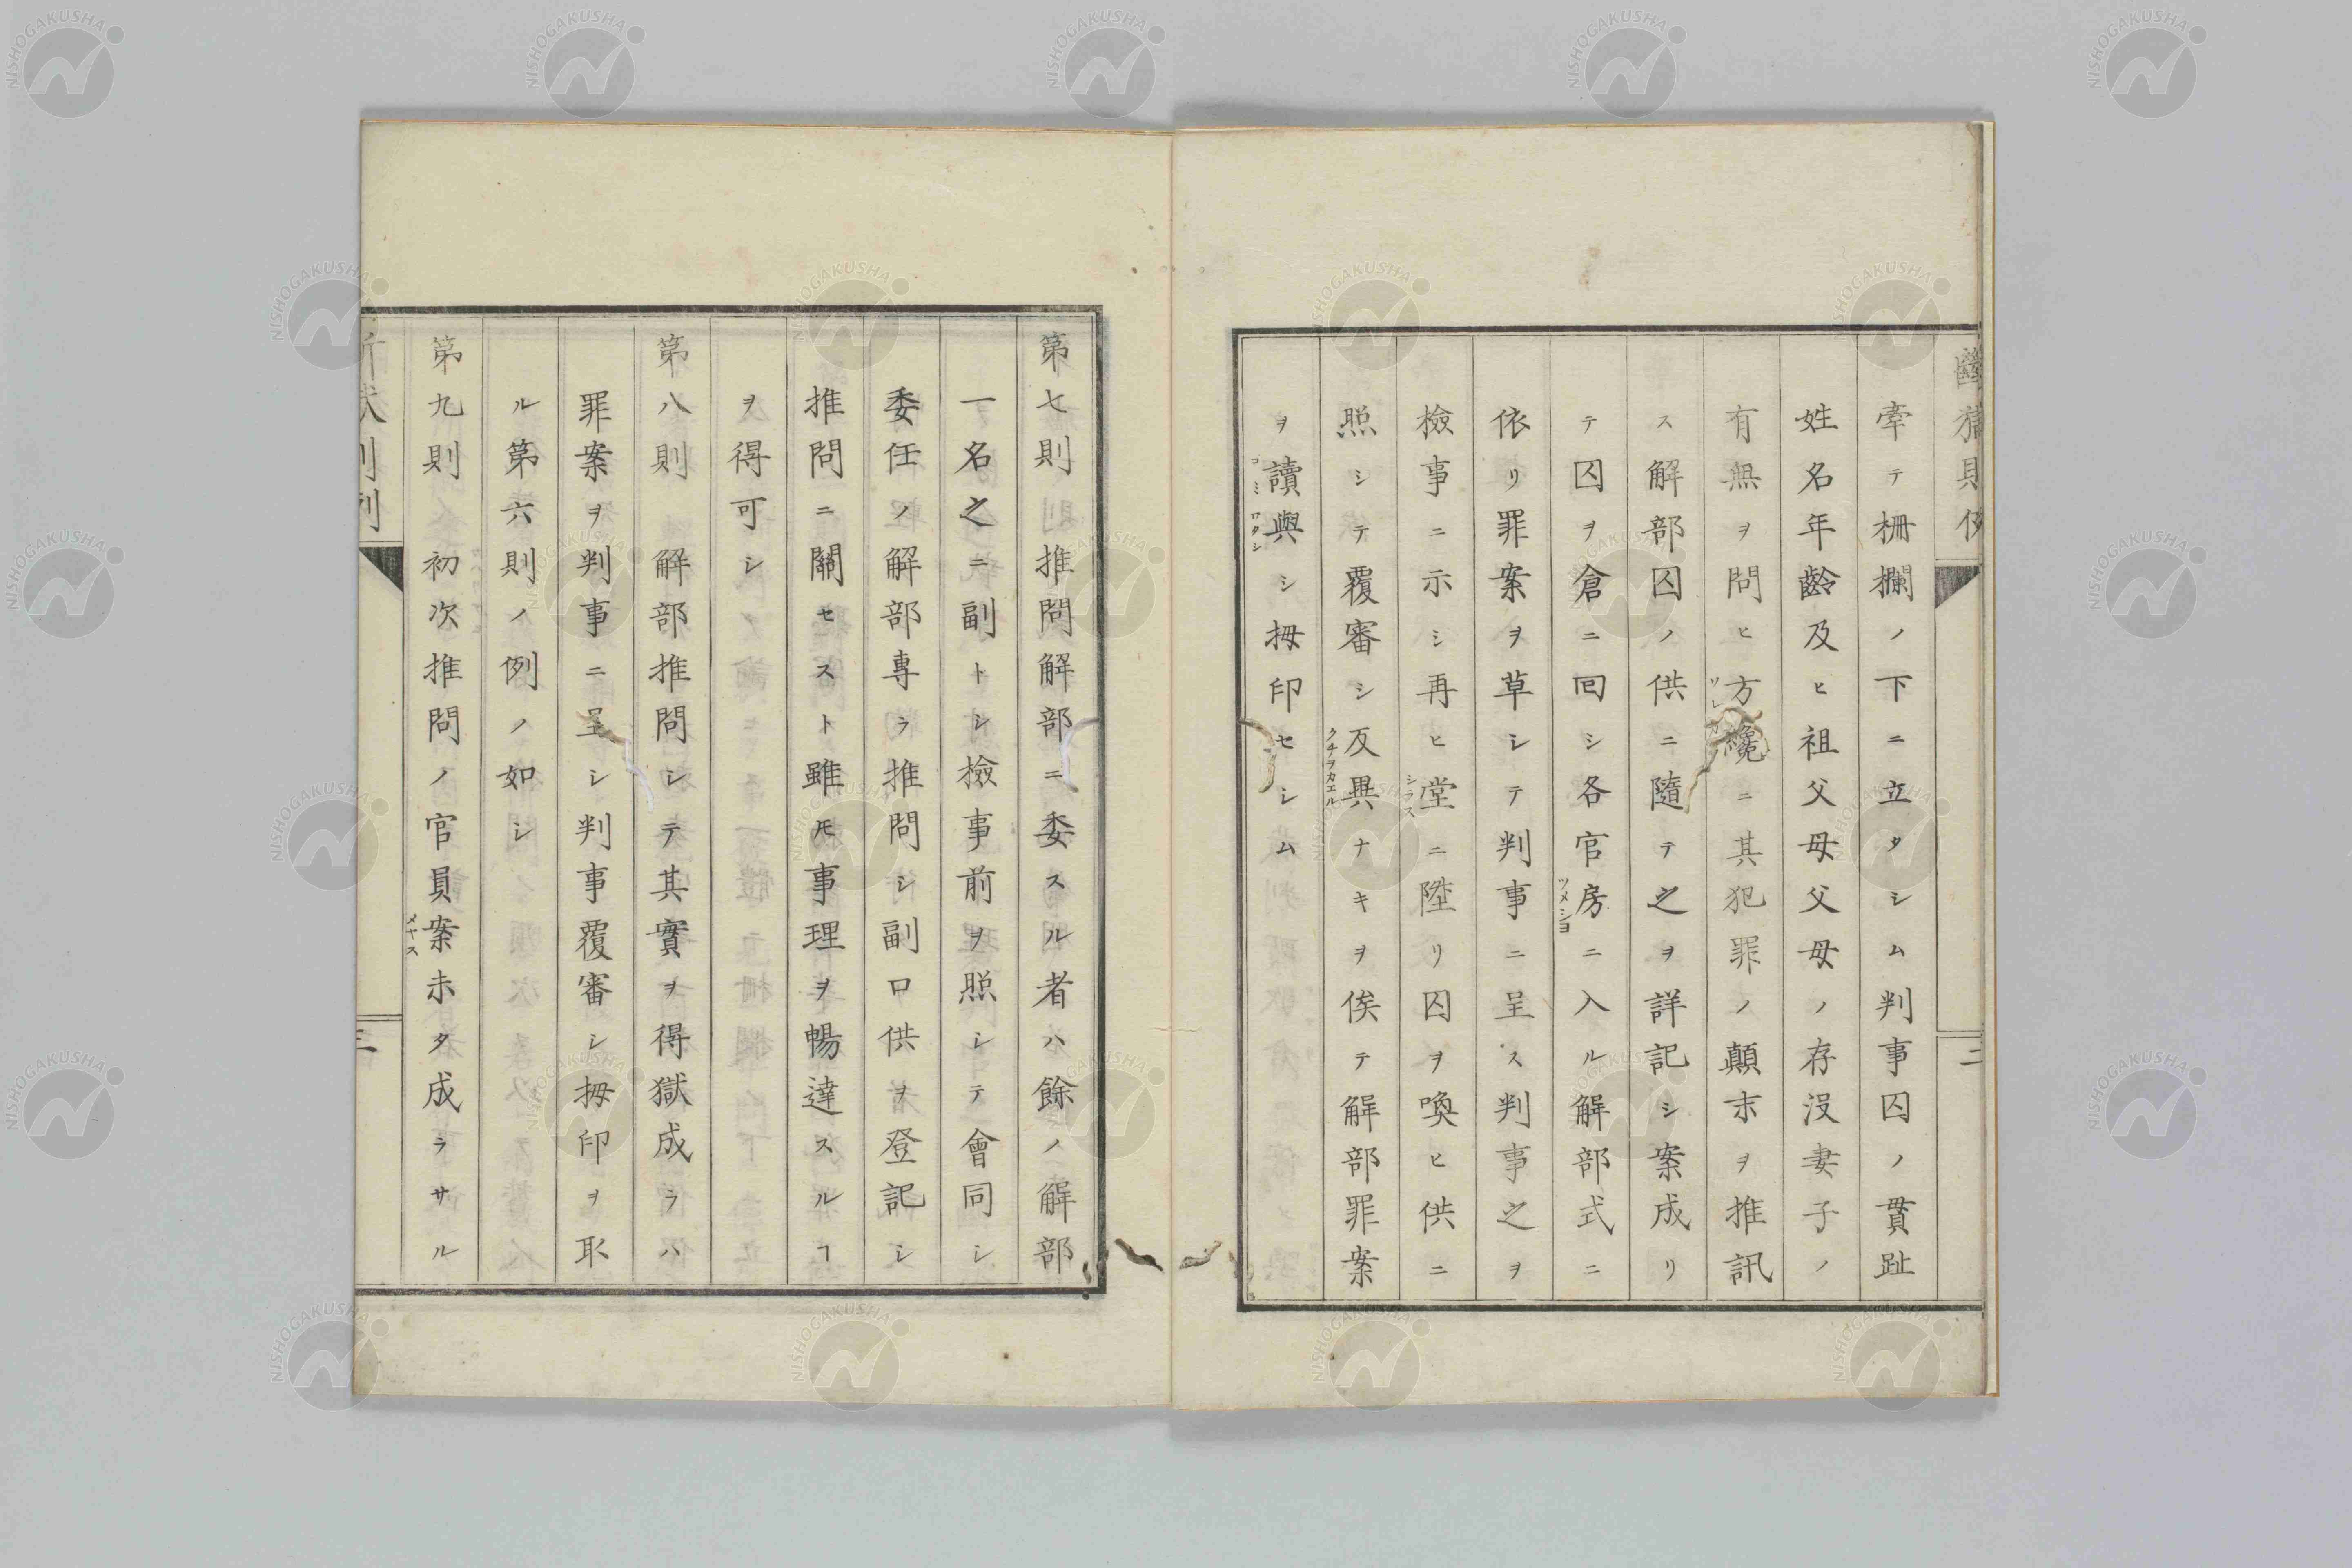 牽テ柵欄ノ下ニ立タシム判事囚ノ貫趾
姓名年齡及ヒ祖父母父母ノ存没妻子ノ
有無ヲ問ヒ方纔ニ其犯罪ノ顛末ヲ推訊
ス解部囚ノ供ニ隨テ之ヲ詳記シ案成リ
テ囚ヲ倉ニ回シ各官房ニ入ル解部式ニ
ツメシヨ
依リ罪案ヲ草シテ判事ニ呈ス判事之ヲ
檢事ニ示シ再ヒ堂ニ陞リ囚ヲ喚ヒ供ニ
シラス
照シテ覆審シ反異ナキヲ俟テ解部罪案
クチヲカエル
ヲ讀與シ拇印セシム
ヨミワタシ
二
第七則推問解部ニ委スル者ハ餘ノ解部
一名之ニ副トシ檢事前ヲ照シテ會同シ
委任ノ解部專ラ推問シ副口供ヲ登記シ
推問ニ關セスト雖㆑事理ヲ暢達スルヿ
ヲ得可シ
第八則 解部推問シテ其實ヲ得獄成ラハ
罪案ヲ判事ニ呈シ判事覆審シ拇印ヲ取
ル第六則ノ例ノ如シ
第九則 初次推問ノ官員案未タ成ラサル
メヤス
三
NISHOGAKUSHA